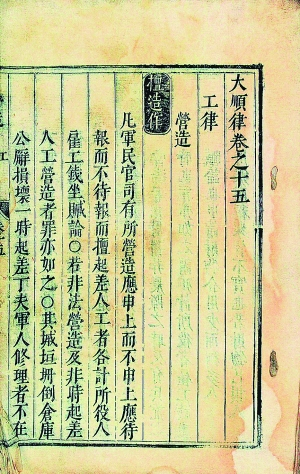 大順律卷之十五
工律
營造
擅造作
凡軍民官司有所營造應申上而不申上應待
報而不待報而擅起差人工者各計所役人
雇工錢坐贓論○若非法營造及非時起差
人工營造者罪亦如之○其城垣坍倒倉庫
公廨損壞一時起差丁夫軍人修理者不在